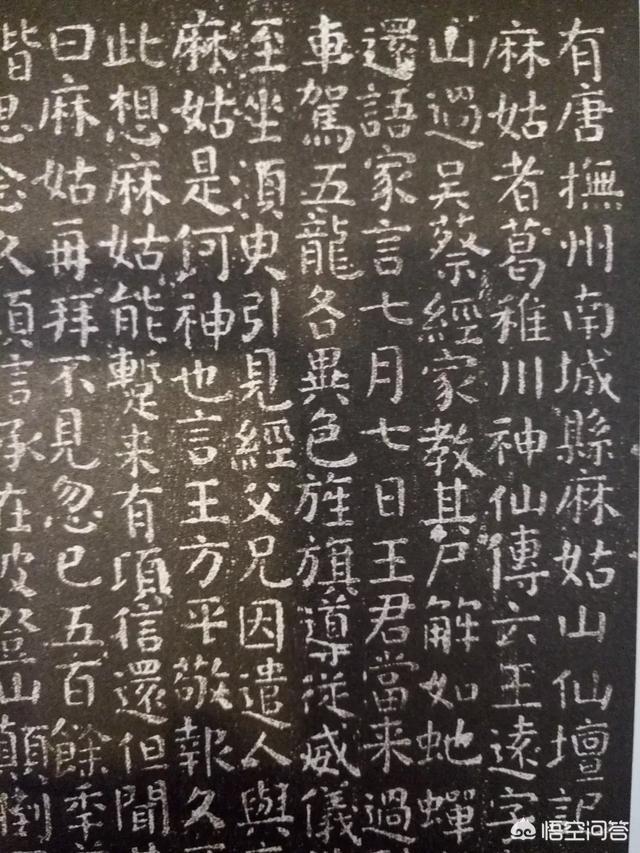 有唐撫州南城縣麻姑山仙壇記
麻姑者葛稚川神仙傳云王遠字
山過吴蔡經家教其尸解如虵蟬
還語家言七月七日王君當来過
車駕五龍各異色旌旗導從威儀
至坐須臾引見經父兄因遣人與
麻姑是何神也言王方平敬報久
此想麻姑能蹔来有頃信還但聞
曰麻姑再拜不見忽已五百餘季
皆思念久煩信承在彼登山顛倒
悟空问答